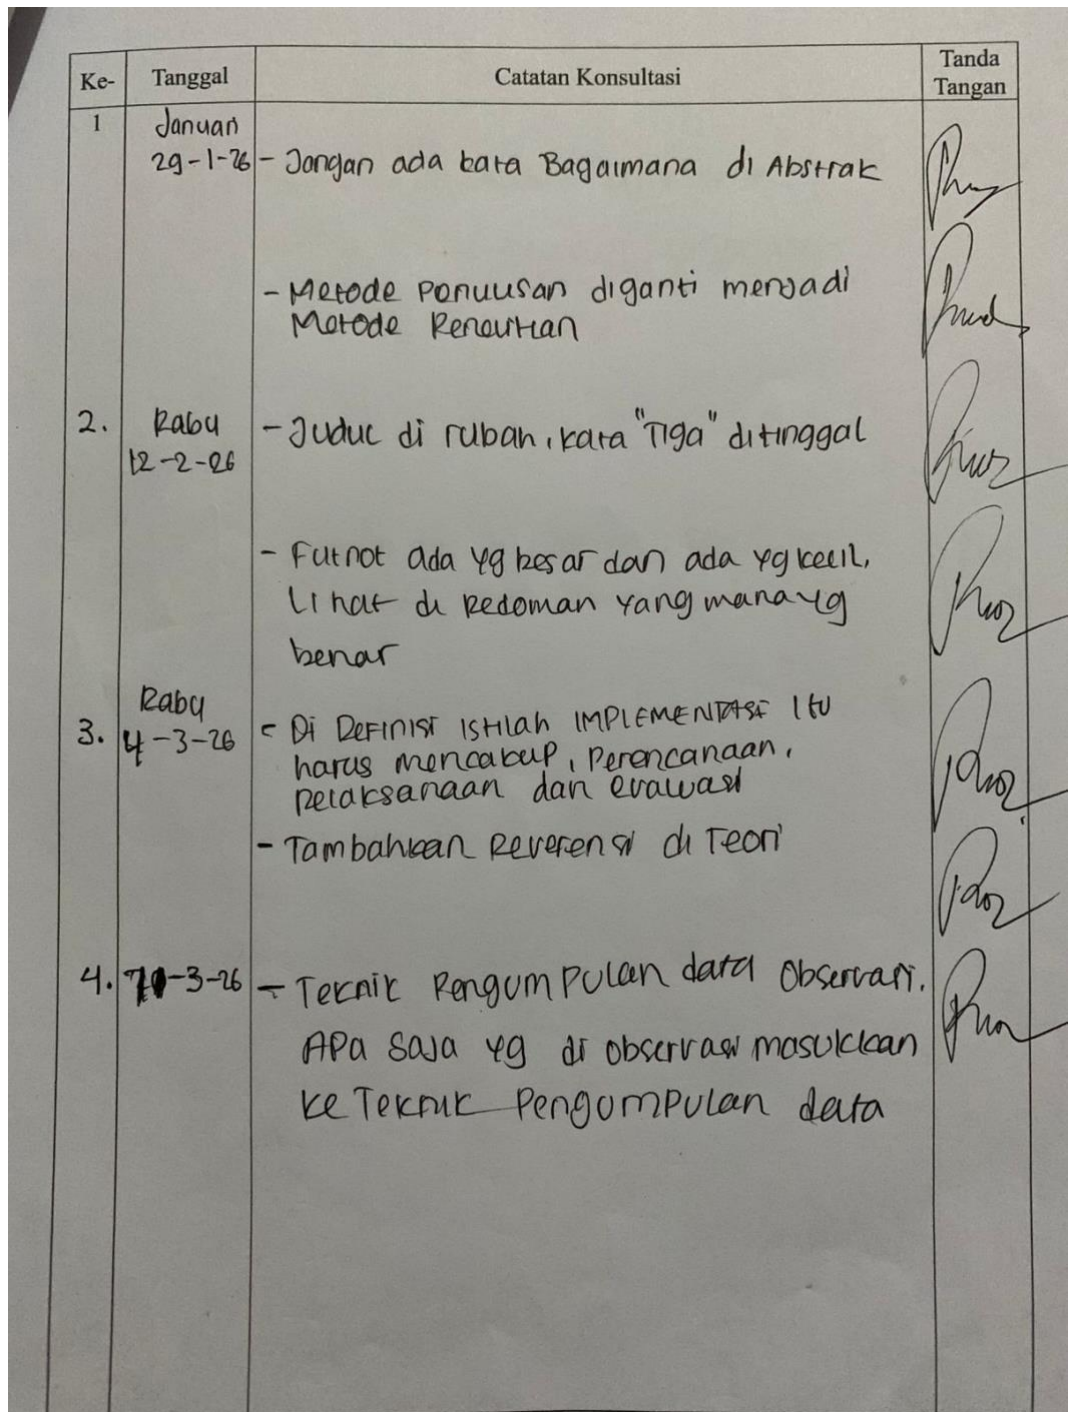 Ke- Tanggal Catatan Konsultasi Tanda Tangan
1 Januari
29-1-26 - Jangan ada kata Bagaimana di Abstrak
- Metode Penulisan diganti menjadi
Metode Penelitian
2. Rabu - Judul di rubah, kata "Tiga" ditinggal
12-2-26
- Futnot ada yg besar dan ada yg kecil,
Lihat di Pedoman yang mana yg
benar
Rabu
3. 4-3-26 - Di Definisi Istilah IMPLEMENTASI Itu
harus mencakup, Perencanaan,
pelaksanaan dan evaluasi
- Tambahkan Reverensi di Teori
4. -3-26 - Teknik Pengumpulan data Observasi.
Apa saja yg di observasi masukkan
ke Teknik Pengumpulan data